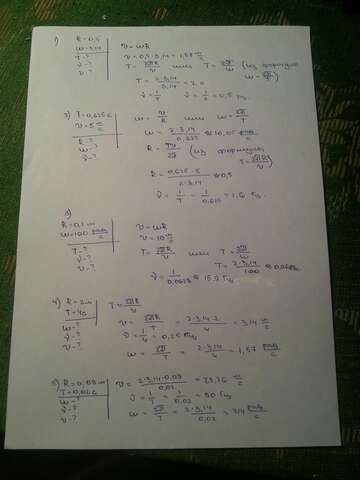 1)
R = 0,5
w = 3,14
T - ?
ν - ?
v - ?
v = wR
v = 0,5 · 3,14 = 1,57 м/с
T = 2πR/v или T = 2π/w (из формулы
T = 2 · 3,14/3,14 = 2 с
ν = 1/T ν = 1/2 = 0,5 Гц
2) T = 0,625 с
v = 5 м/с
R - ?
w - ?
ν - ?
w = v/R или w = 2π/T
w = 2 · 3,14/0,625 ≈ 10,05 рад/с
R = Tv/2π (из формулы
T = 2πR/v)
R = 0,625 · 5/2 · 3,14 ≈ 0,5
ν = 1/T = 1/0,625 = 1,6 Гц
3)
R = 0,1 м
w = 100 рад/с
T - ?
ν - ?
v - ?
v = wR
v = 10 м/с
T = 2πR/v или T = 2π/w
T = 2 · 3,14/100 ≈ 0,0628 с
ν = 1/0,0628 ≈ 15,9 Гц
4) R = 2 м
T = 4 с
w - ?
ν - ?
v - ?
T = 2πR/v
v = 2πR/T = 2 · 3,14 · 2/4 = 3,14 м/с
ν = 1/4 = 0,25 Гц
w = 2π/T = 2 · 3,14/4 = 1,57 рад/с
5) R = 0,09 м
T = 0,02 с
w - ?
ν - ?
v - ?
v = 2 · 3,14 · 0,09/0,02 = 28,26 м/с
ν = 1/T = 1/0,02 = 50 Гц
w = 2π/T = 2 · 3,14/0,02 = 314 рад/с